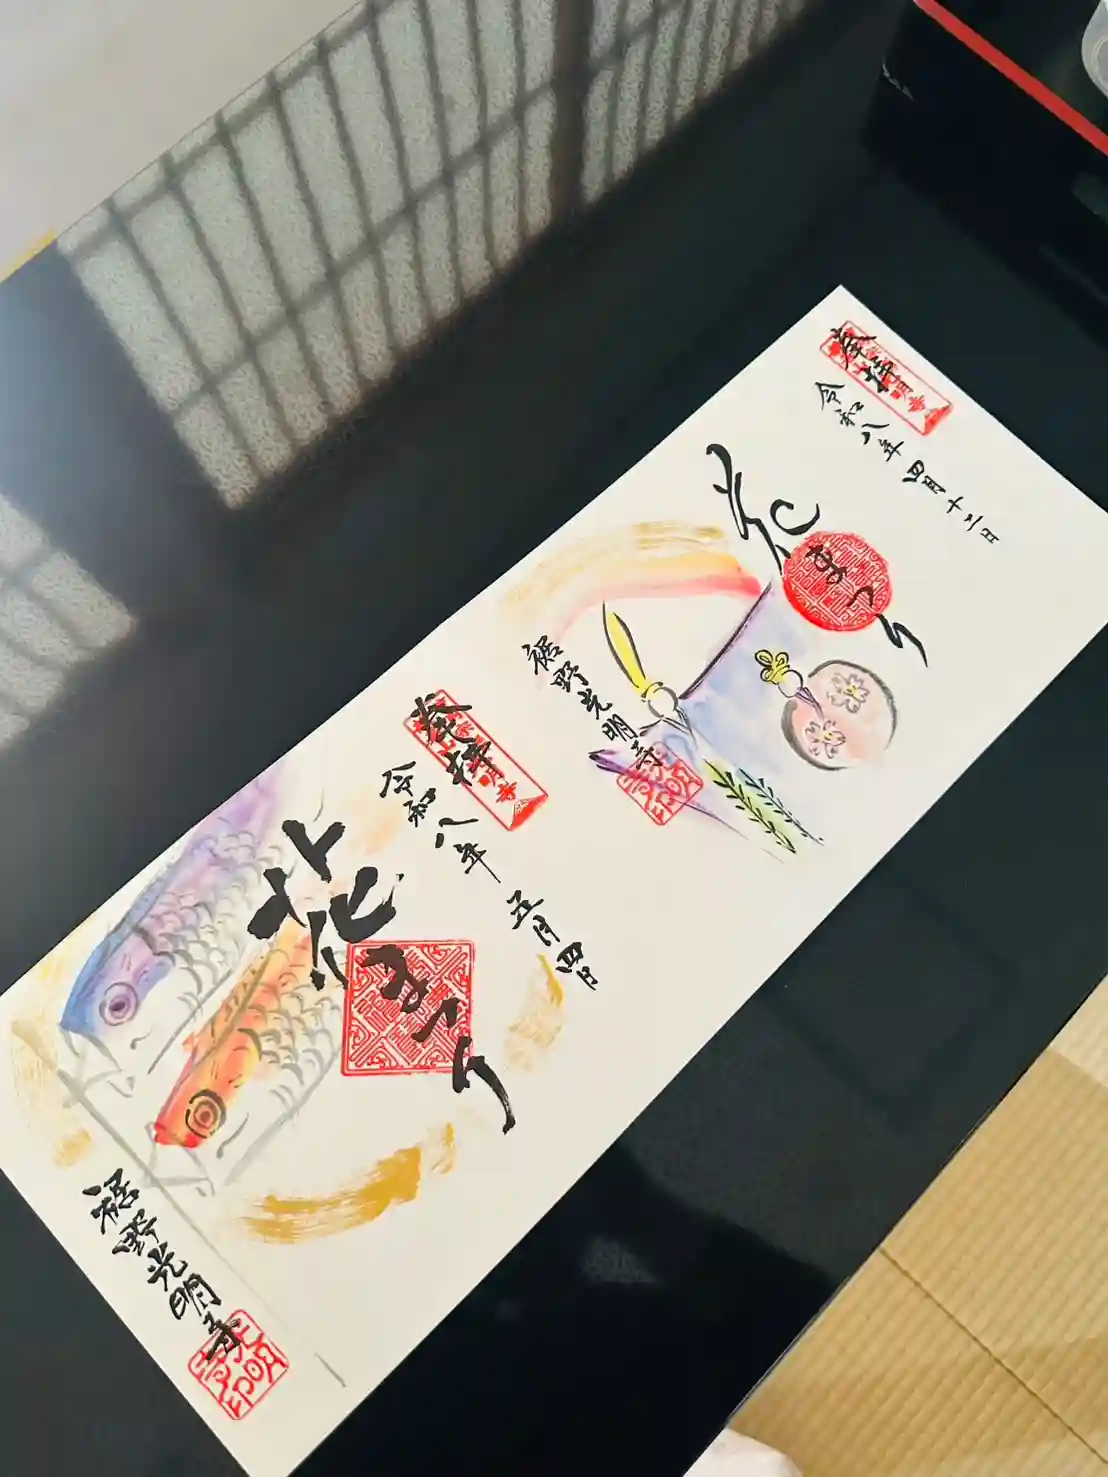 奉拝
令和八年 四月十二日
花まつり
裾野光明寺
奉拝
令和八年 五月四日
花まつり
裾野光明寺